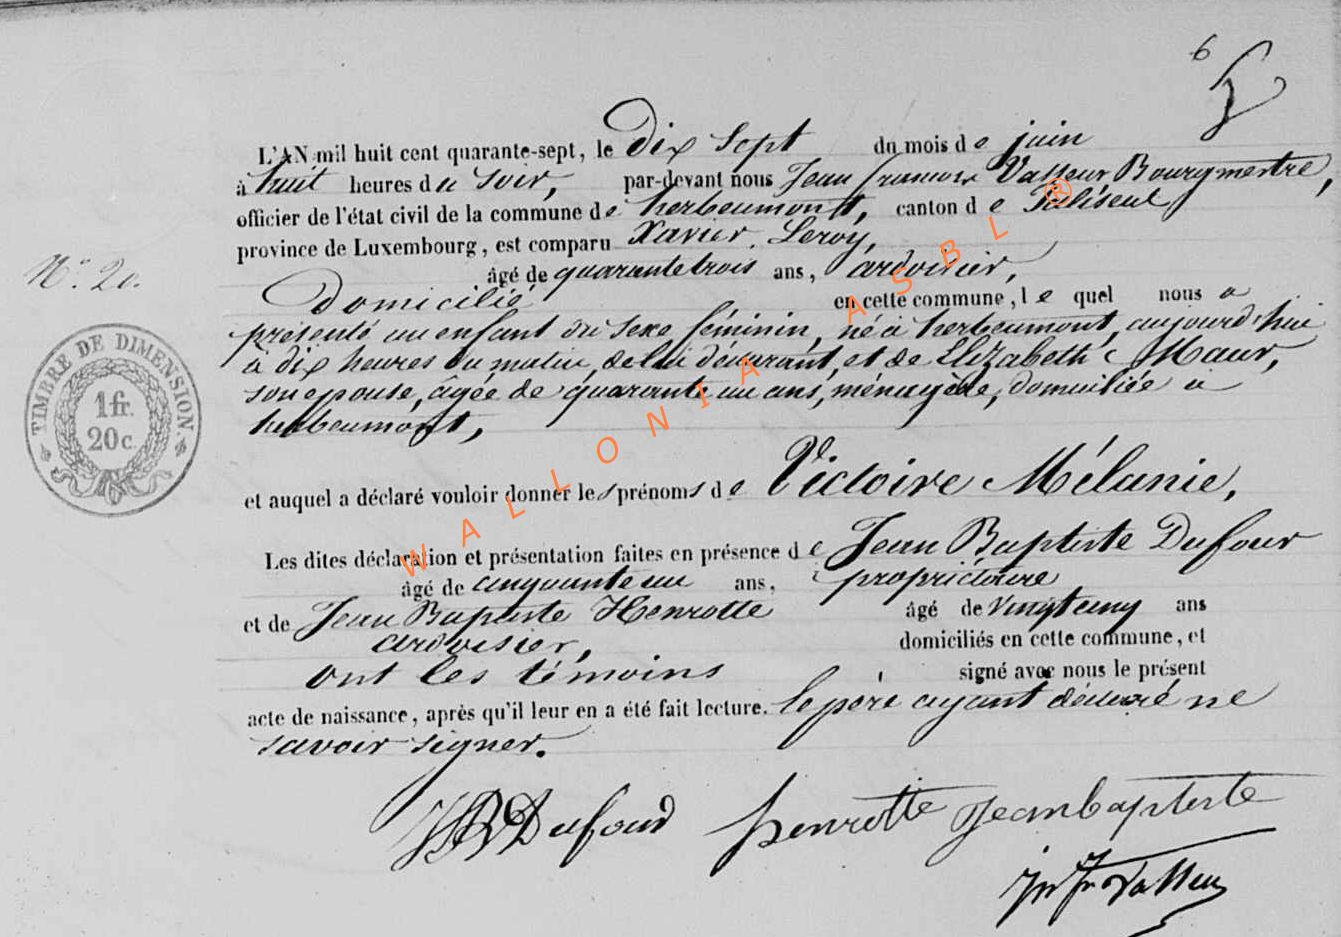 6
L'AN mil huit cent quarante-sept, le dix Sept du mois de juin
à huit heures du soir, par-devant nous Jean francois Vasseur Bourgmestre,
officier de l'état civil de la commune de herbeumont, canton de Paliseul
province de Luxembourg, est comparu Xavier Leroy,
N° 20.
âgé de quarante trois ans, ardoisier,
Domicilié en cette commune, le quel nous a
présenté un enfant du sexe féminin, né à herbeumont, aujourd'hui
à dix heures du matin, de lui déclarant, et de Elizabeth Maur,
son epouse, âgée de quarante un ans, ménagère, domiciliée à
herbeumont,
TIMBRE DE DIMENSION.
1 fr.
20 c.
et auquel a déclaré vouloir donner les prénoms de Victoire Mélanie,
Les dites déclaration et présentation faites en présence de Jean Baptiste Dufour
âgé de cinquante un ans, propriétaire
et de Jean Baptiste Henrotte âgé de vingt cinq ans
ardoisier, domiciliés en cette commune, et
ont les témoins signé avec nous le présent
acte de naissance, après qu'il leur en a été fait lecture. le père ayant déclaré ne
savoir signer.
JB Dufour henrotte jeanbaptiste
WALLONIA ASBL ®